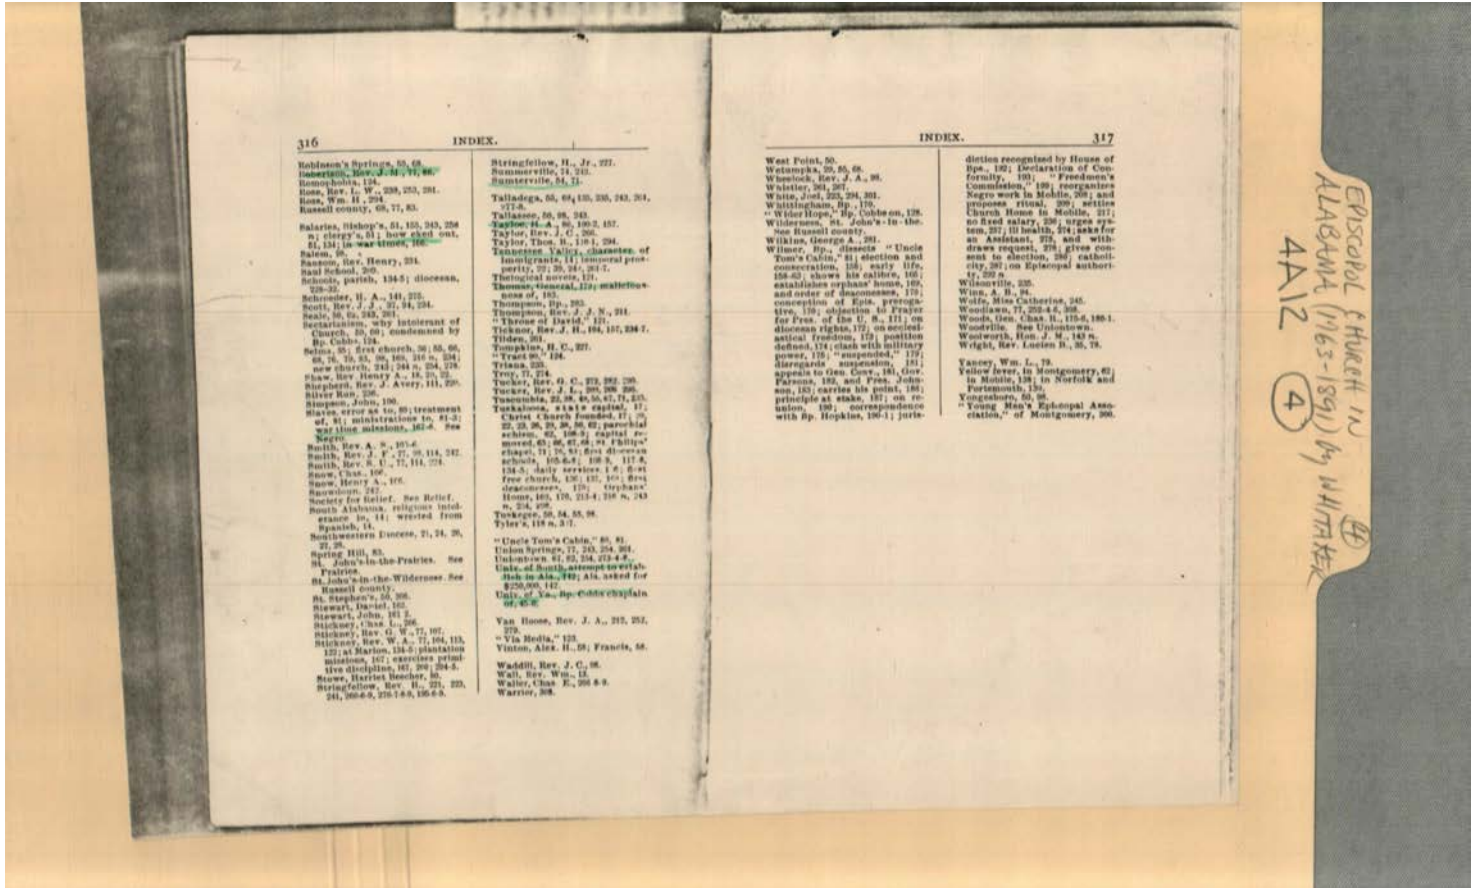 316 INDEX.
Robinson's Springs, 55, 68.
Robertson, Rev. J. M., 77, 86.
Romophobia, 124.
Rose, Rev. L. W., 238, 253, 281.
Ross, Wm. H., 294.
Russell county, 68, 77, 83.
Salaries, Bishop's, 51, 155, 243, 256
n; clergy's, 51; how eked out,
51, 134; in war times, 166.
Salem, 98.
Sansom, Rev. Henry, 234.
Saul School, 209.
Schools, parish, 134-5; diocesan,
228-32.
Schroeder, H. A., 141, 275.
Scott, Rev. J. J., 37, 94, 234.
Seale, 243, 261.
Sectarianism, why intolerant of
Church, 59, 60; condemned by
Bp. Cobbs, 124.
Selma, 35; first church, 36; 55, 66,
68, 76, 79, 85, 98, 169, 216 n, 234;
new church, 243; 244 n, 254, 278.
Shaw, Rev. Henry A., 18, 20, 22.
Shepherd, Rev. J. Avery, 111, 229.
Silver Run, 236.
Simpson, John, 100.
Slaves, error as to, 80; treatment
of, 81; ministrations to, 81-3;
war time missions, 162-6. See
Negro.
Smith, Rev. A. S., 105-6.
Smith, Rev. J. F., 77, 98, 114, 242.
Smith, Rev. S. U., 77, 114, 224.
Snow, Chas., 106.
Snow, Henry A., 106.
Snowdoun, 242.
Society for Relief. See Relief.
South Alabama, religious intol-
erance in, 14; wrested from
Spanish, 14.
Southwestern Diocese, 21, 24, 26,
27, 28.
Spring Hill, 83.
St. John's-in-the-Prairies. See
Prairies.
St. John's-in-the-Wilderness. See
Russell county.
St. Stephen's, 50, 306.
Stewart, Daniel, 163.
Stewart, John, 161 2.
Stickney, Chas. L., 266.
Stickney, Rev. G. W., 77, 107.
Stickney, Rev. W. A., 77, 104, 113,
122; at Marion, 134-5; plantation
missions, 167; exercises primi-
tive discipline, 167, 200; 294-5.
Stowe, Harriet Beecher, 80.
Stringfellow, Rev. H., 221, 223,
241, 260-6-9, 276-7-8-9,
Stringfellow, H., Jr., 227.
Summerville, 74, 243.
Sumterville, 54, 71.
Talladega, 55, 68, 135, 235, 243, 261,
277-8.
Tallassee, 50, 98, 243.
Tayloe, H. A., 86, 100-2, 157.
Taylor, Rev. J. C., 266.
Taylor, Thos. B., 294.
Tennessee Valley, character of
immigrants, 14; temporal pros-
perity, 22; 29, 261-7.
Thelogical novels, 121.
Thomas, General, 179; malicious-
ness of, 183.
Thompson, Bp., 283.
Thompson, Rev. J. J. N., 211.
"Throne of David," 121.
Ticknor, Rev. J. H., 104, 157, 234-7.
Tilden, 261.
Tompkins, H. C., 227.
"Tract 90," 124.
Triana, 235.
Troy, 77, 274.
Tucker, Rev. G. C., 273, 282, 290.
Tucker, Rev. J. L., 266, 268, 295.
Tuscumbia, 22, 38, 48, 56, 67, 71, 235.
Tuskaloosa, state capital, 17;
Christ Church founded, 17; 20,
22, 23, 26, 29, 38, 56, 62; parochial
schism, 62, 108-9; capital re-
moved, 63; 66, 67, 68; St. Philips'
chapel, 71; 76, 81; first diocesan
schools, 105-6-8; 108-9, 117-8,
134-5; daily services, first
free church, 136; 137, 168; first
deaconesses, 170; Orphans'
Home, 169, 170, 213-4; 216 n, 243
n, 254, 298.
Tuskegee, 50, 54, 55, 98.
Tyler's, 118 n,
"Uncle Tom's Cabin," 80, 81.
Union Springs, 77, 243, 254, 261.
Uniontown, 67, 82, 254, 273-4-8.
Univ. of South, attempt to estab-
lish in Ala., 142; Ala. asked for
$250,000, 142.
Univ. of Va., Bp. Cobbs chaplain
of, 45-6.
Van Hoose, Rev. J. A., 212, 252,
279.
"Via Media," 123.
Vinton, Alex. H., 58; Francis, 58.
Waddill, Rev. J. C., 98.
Wall, Rev. Wm., 13.
Waller, Chas. E., 266 8-9.
Warrior, 308.
INDEX. 317
West Point, 50.
Wetumpka, 29, 55, 68.
Wheelock, Rev. J. A., 98.
Whistler, 261, 267.
White, Joel, 223, 294, 301.
Whittingham, Bp., 179.
"Wider Hope," Bp. Cobbs on, 128.
Wilderness, St. John's-in-the.
See Russell county.
Wilkins, George A., 281.
Wilmer, Bp., dissects "Uncle
Tom's Cabin," 81; election and
consecration, 158; early life,
158-63; shows his calibre, 165;
establishes orphans' home, 169,
and order of deaconesses, 170;
conception of Epis. preroga-
tive, 170; objection to Prayer
for Pres. of the U. S., 171; on
diocesan rights, 172; on ecclesi-
astical freedom, 173; position
defined, 174; clash with military
power, 176; "suspended," 179;
disregards suspension, 181;
appeals to Gen. Conv., 181, Gov.
Parsons, 182, and Pres. John-
son, 183; carries his point, 186;
principle at stake, 187; on re-
union, 190; correspondence
with Bp. Hopkins, 190-1; juris-
diction recognized by House of
Bps., 192; Declaration of Con-
formity, 193; "Freedmen's
Commission," 199; reorganizes
Negro work in Mobile, 208; and
proposes ritual, 209; settles
Church Home in Mobile, 217;
no fixed salary, 256; urges sys-
tem, 257; ill health, 274; asks for
an Assistant, 275, and with-
draws request, 278; gives con-
sent to election, 280; catholi-
city, 287; on Episcopal authori-
ty, 292 n
Wilsonville, 235.
Winn, A. B., 94.
Wolfe, Miss Catherine, 245.
Woodlawn, 77, 252-4-6, 308.
Woods, Gen. Chas. R., 175-6, 180-1.
Woodville. See Uniontown.
Woolworth, Hon. J. M., 143 n.
Wright, Rev. Lucien B., 35, 78.
Yancey, Wm. L., 79.
Yellow fever, in Montgomery, 62;
in Mobile, 138; in Norfolk and
Portsmouth, 139.
Yongesboro, 50, 98.
"Young Men's Episcopal Asso-
ciation," of Montgomery, 300.
EPISCOPAL CHURCH IN (4)
ALABAMA (1763-1891) by WHITAKER
4A12 (4)